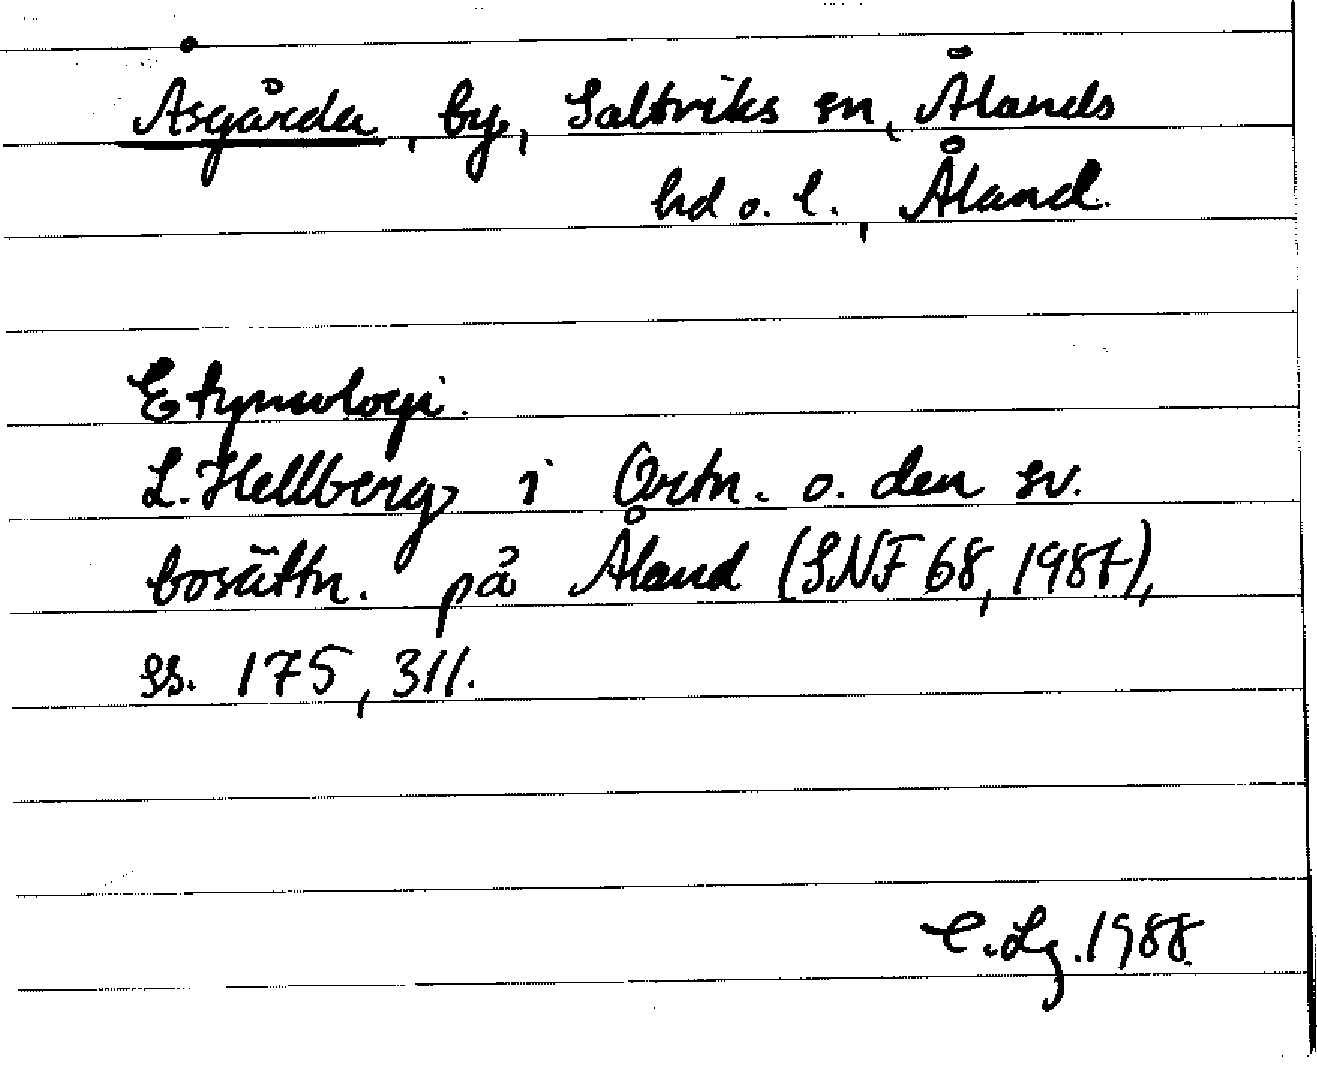 Åsgårda, by, Saltviks sn, Ålands
hd o. l., Åland.
Etymologi.
L. Hellberg i Ortn. o. den sv.
bosättn. på Åland (SNF 68, 1987),
ss. 175, 311.
C. Lg. 1988.